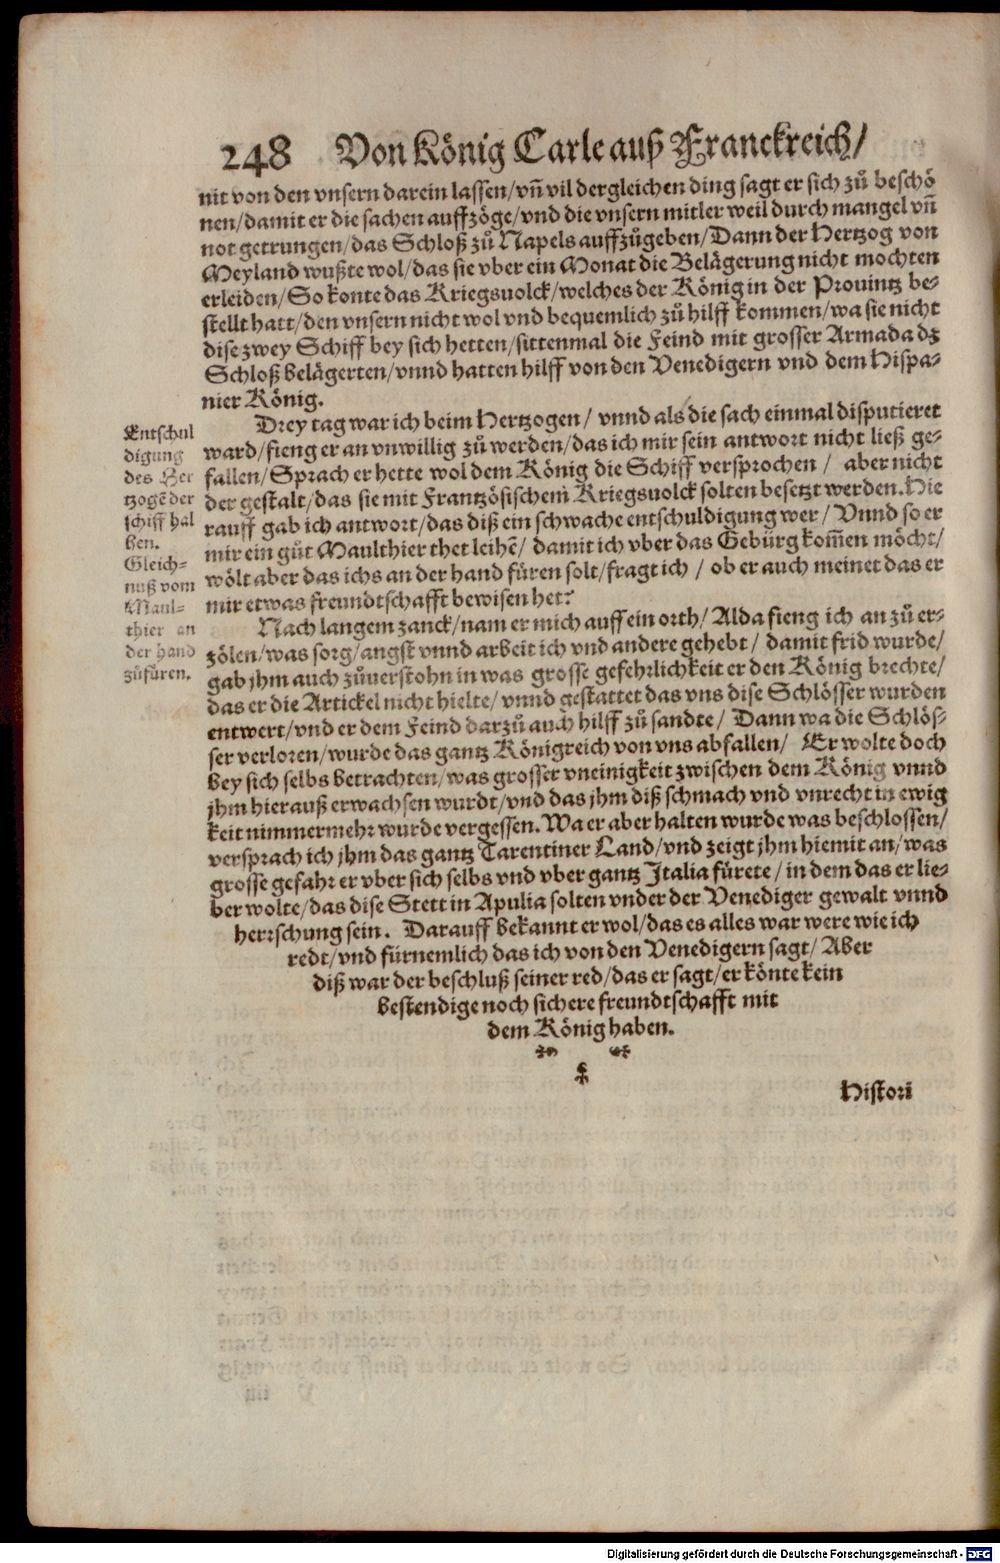 248 Von König Carle auß Franckreich/
nit von den vnsern darein lassen/vñ vil dergleichen ding sagt er sich zů beschö
nen/damit er die sachen auffzöge/vnd die vnsern mitler weil durch mangel vñ
not getrungen/das Schloß zů Napels auffzůgeben/Dann der Hertzog von
Meyland wußte wol/das sie vber ein Monat die Belägerung nicht mochten
erleiden/So konte das Kriegsuolck/welches der König in der Prouintz be-
stellt hatt/den vnsern nicht wol vnd bequemlich zů hilff kommen/wa sie nicht
dise zwey Schiff bey sich hetten/sittenmal die Feind mit grosser Armada dz
Schloß belägerten/vnnd hatten hilff von den Venedigern vnd dem Hispa-
nier König.
Drey tag war ich beim Hertzogen/ vnnd als die sach einmal disputieret
ward/fieng er an vnwillig zů werden/das ich mir sein antwort nicht ließ ge-
fallen/Sprach er hette wol dem König die Schiff versprochen/ aber nicht
der gestalt/das sie mit Frantzösischem Kriegsuolck solten besetzt werden. Hie
rauff gab ich antwort/das diß ein schwache entschuldigung wer/ Vnnd so er
mir ein gůt Maulthier thet leihẽ/ damit ich vber das Gebürg kom̃en möcht/
wölt aber das ichs an der hand füren solt/fragt ich/ ob er auch meinet das er
mir etwas freundtschafft bewisen het?
Entschul
digung
des Her
tzogẽ der
schiff hal
ben.
Gleich-
nuß vom
Maul-
thier an
der hand
zůfüren.
Nach langem zanck/nam er mich auff ein orth/ Alda fieng ich an zů er-
zölen/was sorg/angst vnnd arbeit ich vnd andere gehebt/ damit frid wurde/
gab jhm auch zůuerstohn in was grosse gefehrlichkeit er den König brechte/
das er die Artickel nicht hielte/ vnnd gestattet das vns dise Schlösser wurden
entwert/vnd er dem Feind darzů auch hilff zů sandte/ Dann wa die Schlös-
ser verloren/wurde das gantz Königreich von vns abfallen/ Er wolte doch
bey sich selbs betrachten/was grosser vneinigkeit zwischen dem König vnnd
jhm hierauß erwachsen wurdt/vnd das jhm diß schmach vnd vnrecht in ewig
keit nimmermehr wurde vergessen. Wa er aber halten wurde was beschlossen/
versprach ich jhm das gantz Tarentiner Land/vnd zeigt jhm hiemit an/was
grosse gefahr er vber sich selbs vnd vber gantz Italia fürete/in dem das er lie-
ber wolte/das dise Stett in Apulia solten vnder der Venediger gewalt vnnd
herrschung sein. Darauff bekannt er wol/das es alles war were wie ich
redt/vnd fürnemlich das ich von den Venedigern sagt/ Aber
diß war der beschluß seiner red/das er sagt/er könte kein
bestendige noch sichere freundtschafft mit
dem König haben.
Histori
Digitalisierung gefördert durch die Deutsche Forschungsgemeinschaft - DFG